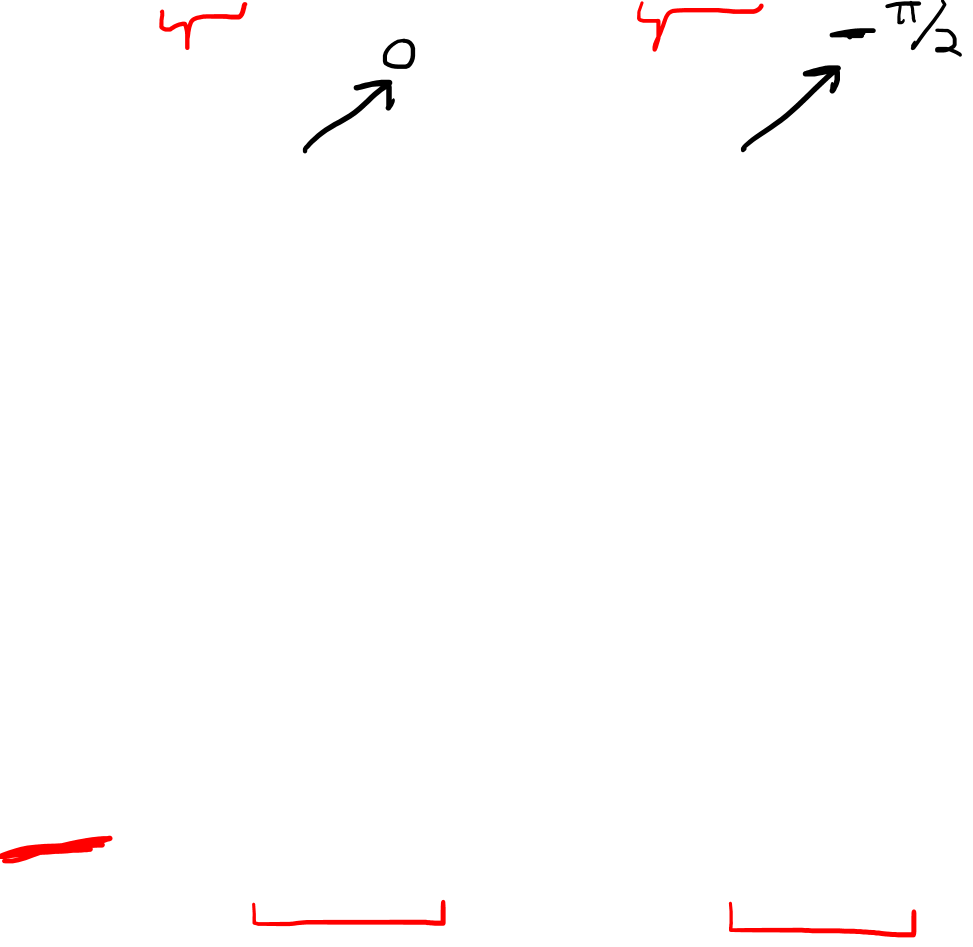 0
- π/2